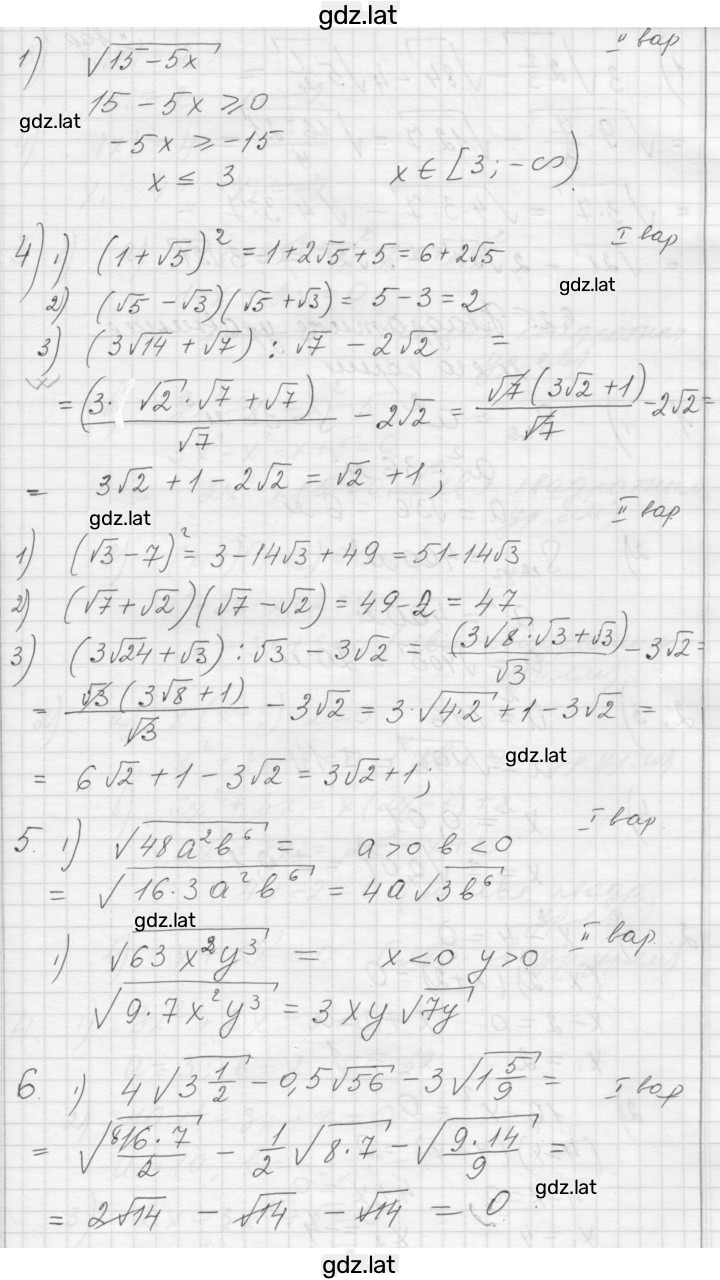 gdz.lat
II вар
1) √(15-5x)
15 - 5x ⩾ 0
gdz.lat
-5x ⩾ -15
x ≤ 3 x ∈ [3; -∞)
I вар
4) 1) (1+√5)² = 1+2√5+5 = 6+2√5
gdz.lat
2) (√5 - √3)(√5 + √3) = 5-3 = 2
3) (3√14 + √7) : √7 - 2√2 =
= (3·√2·√7 + √7)/√7 - 2√2 = √7(3√2+1)/√7 - 2√2 =
= 3√2 + 1 - 2√2 = √2 + 1;
gdz.lat
II вар
1) (√3 - 7)² = 3 - 14√3 + 49 = 51-14√3
2) (√7+√2)(√7-√2) = 49-2 = 47
3) (3√24+√3) : √3 - 3√2 = (3√8·√3+√3)/√3 - 3√2 =
= √3(3√8+1)/√3 - 3√2 = 3·√(4·2) + 1 - 3√2 =
gdz.lat
= 6√2 + 1 - 3√2 = 3√2+1;
I вар
5. 1) √(48a²b⁶) = a>0 b<0
= √(16·3a²b⁶) = 4a√(3b⁶)
gdz.lat
II вар
1) √(63x²y³) = x<0 y>0
√(9·7x²y³) = 3xy√(7y)
6. 1) 4√(3 1/2) - 0,5√56 - 3√(1 5/9) = I вар
= √(816·7/2) - 1/2√(8·7) - √(9·14/9) =
gdz.lat
= 2√14 - √14 - √14 = 0
gdz.lat